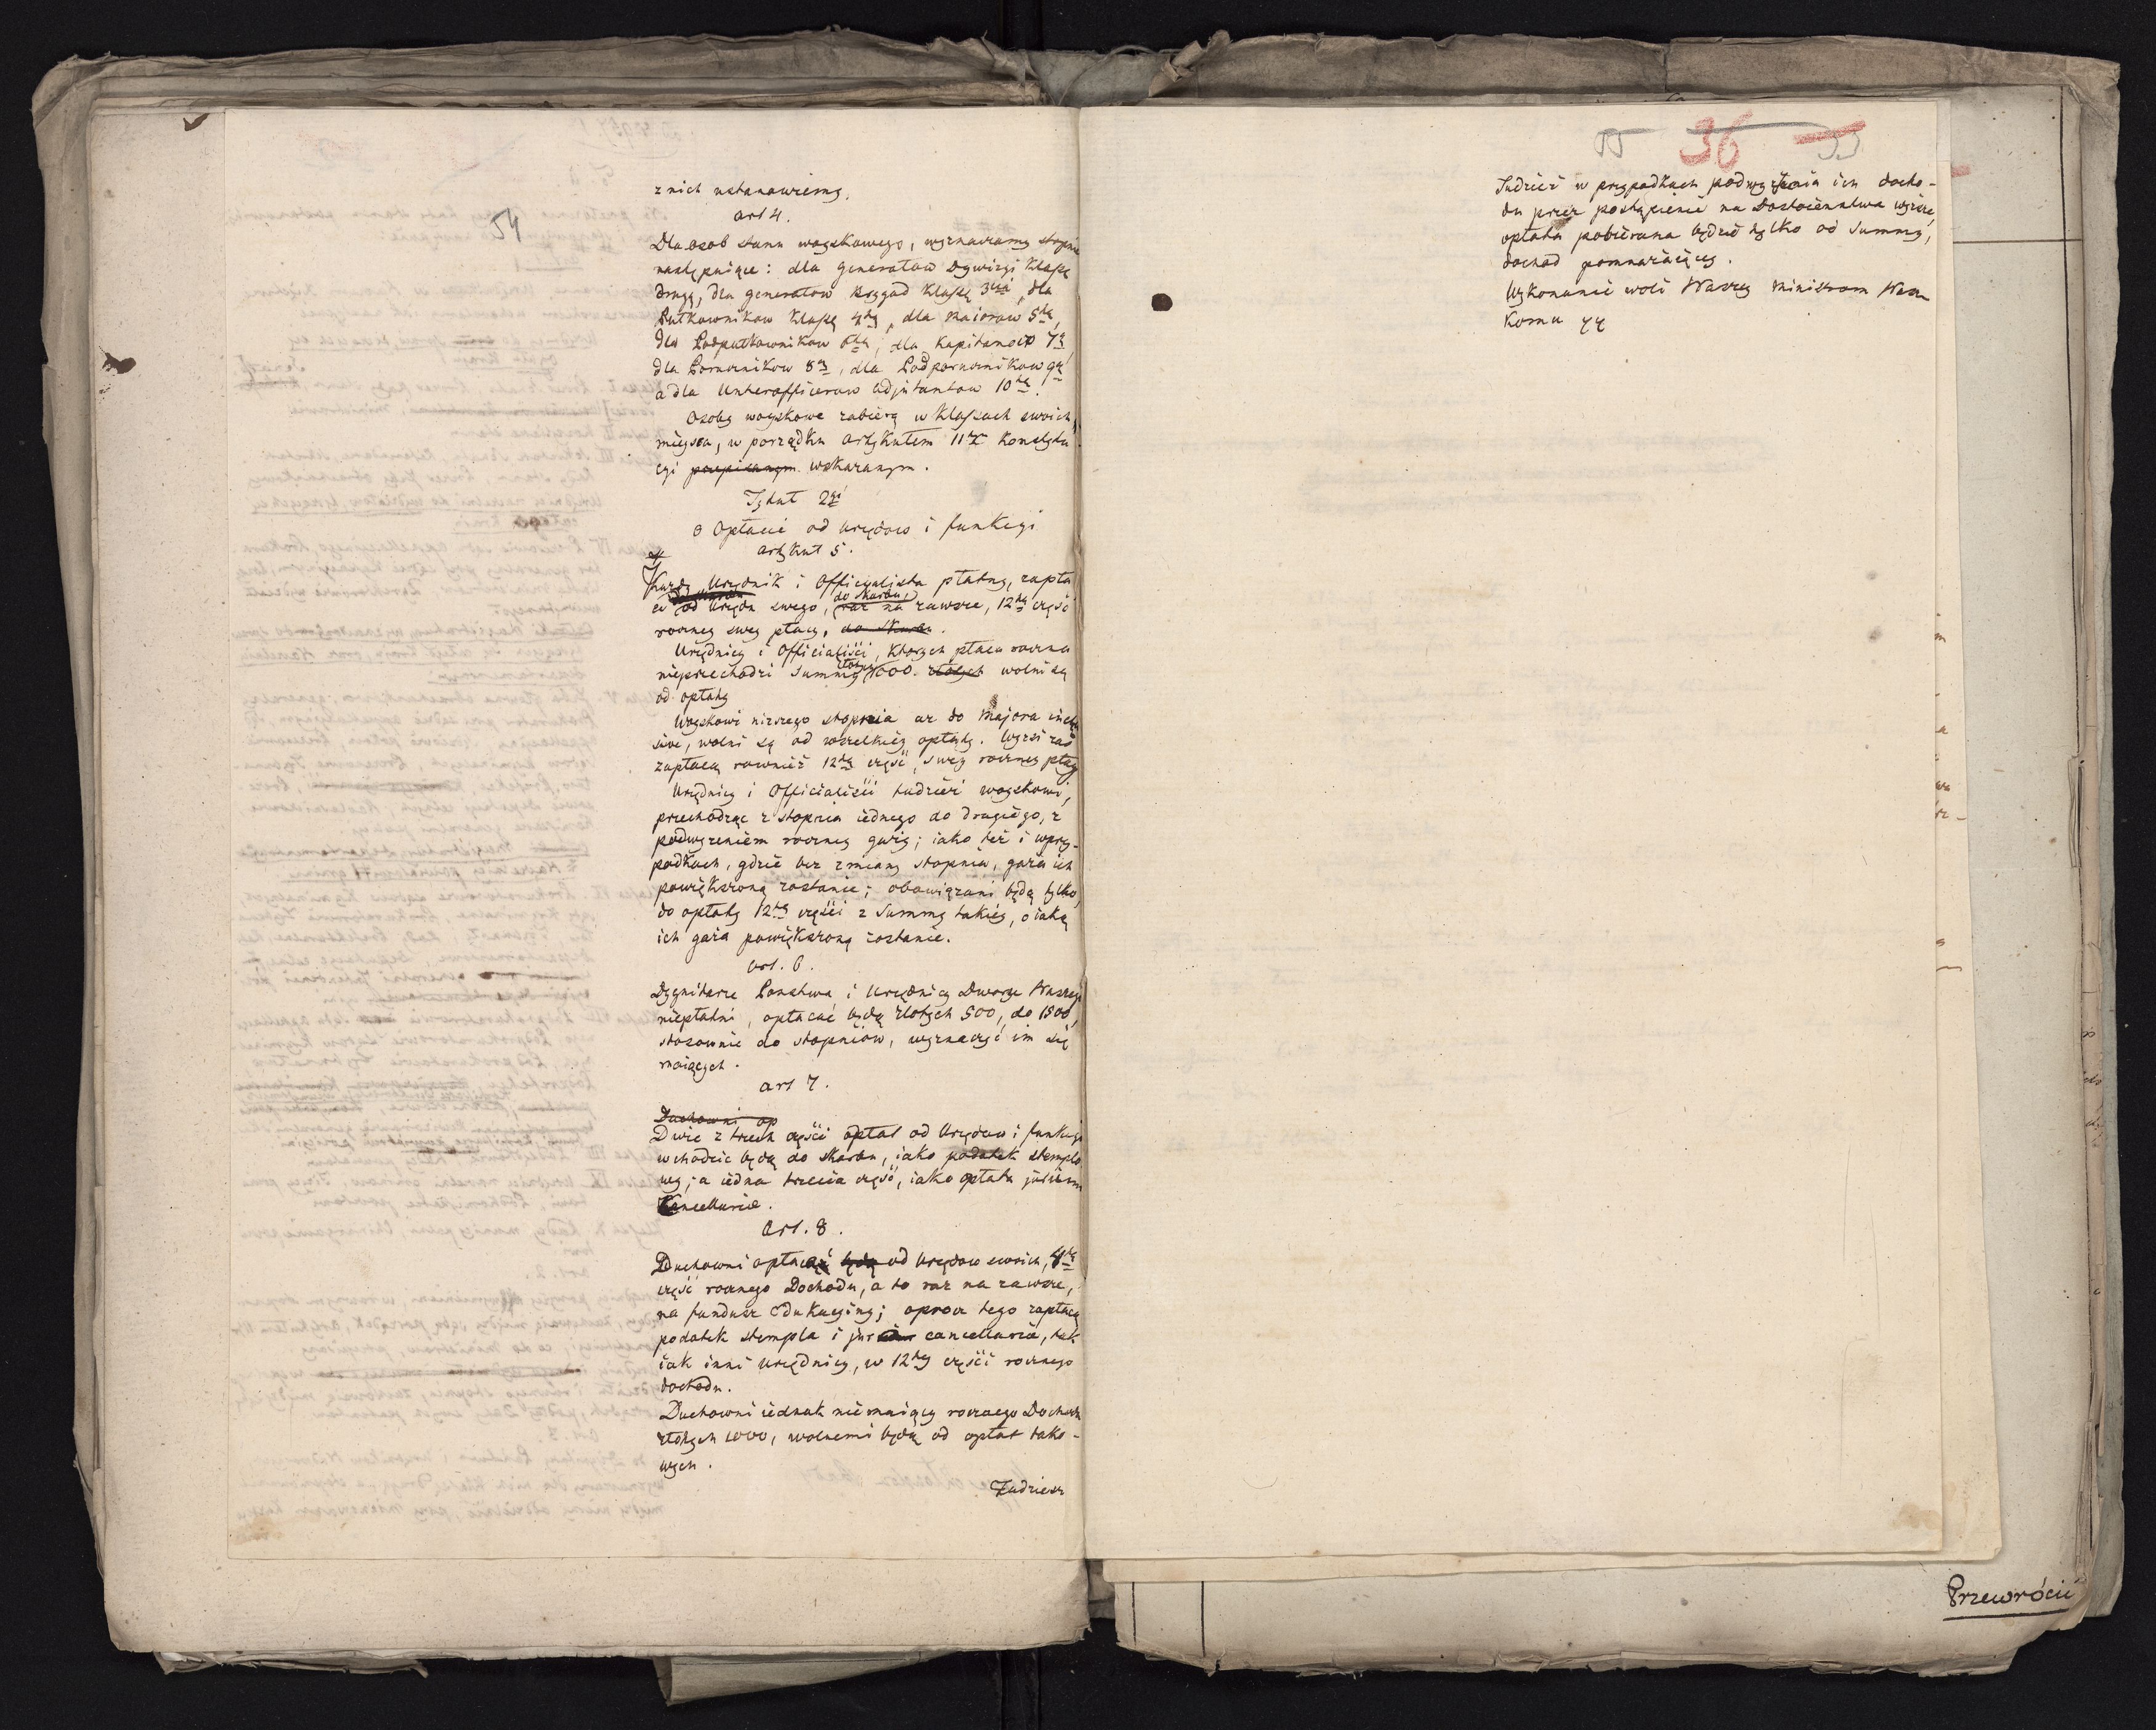 54
z nich ustanowiemy.
Art 4.
Dla osob stanu woyskowego, wyznaczamy stopnie
następuiące: dla Generałow Dywizyi Klassę
drugą, dla generałow Brygad Klassę 3cią, dla
Pułkownikow Klassę 4tą, dla Maiorow 5tą,
dla Podpułkownikow 6tą, dla Kapitanow 7ą
dla Porucznikow 8ą, dla Podporucznikow 9ą
a dla Unterofficerow Adjutantow 10tą.
Osoby woyskowe zabiorą w Klassach swoich
mieysca, w porządku Artykułem 11tym Konstytu
cyi przepisanym wskazanym.
Tytuł 2gi
O Opłacie od Urzędow i funkcyi
Artykuł 5.
Każdy Urzędnik i Officyalista płatny, zapła
do Skarbu,
ci od Urzędu swego, raz na zawsze, 12tą część
roczney swey płacy, do Skarbu.
Urzędnicy i Officialiści, ktorych płaca roczna
złotych
nieprzechodzi Summy 1000. złotych wolni są
od opłaty
Woyskowi niższego stopnia aż do Majora inclu
sive, wolni są od wszelkiey opłaty. Wyżsi zaś
zapłacą rownież 12tą część, swey roczney płacy
Urzędnicy i Officialiści tudzież woyskowi,
przechodząc z stopnia iednego do drugiego, z
podwyżeniem roczney gaży; iako też i wprzy-
padkach, gdzie bez zmiany stopnia, gaża ich
powiększoną zostanie; obowiązani będą tylko
do opłaty 12tey części z Summy takiey, o iaką
ich gaża powiększoną zostanie.
Art. 6.
Dygnitarze Państwa i Urzędnicy Dworu Naszego
niepłatni, opłacać będą złotych 500, do 1500,
stosownie do stopniow, wyznaczyć im się
maiących.
Art 7.
Duchowni op
Dwie z trzech części opłat od Urzędow i funkcyi
wchodzić będą do Skarbu, iako podatek stemplo
wy; a iedna trzecia część, iako opłata jurium
Cancellariae.
Art. 8.
Duchowni opłacać będą od Urzędow swoich, 4tą
część rocznego Dochodu, a to raz na zawsze,
na fundusz Edukacyiny; oprocz tego zapłacą
podatek stempla i jurium cancellaria, tak
iak inni Urzędnicy, w 12tey części rocznego
dochodu.
Duchowni iednak niemaiący rocznego Dochodu
złotych 1000, wolnemi będą od opłat tako-
wych.
Tudziesz
55 36 53
Tudzież w przypadkach podwyższenia ich docho-
du przez postąpienie na Dostoieństwa wyższe,
opłata pobierana będzie tylko od Summy,
dochod pomnażaiącey.
Wykonanie woli Naszey Ministrom
Komu
Przewrócić